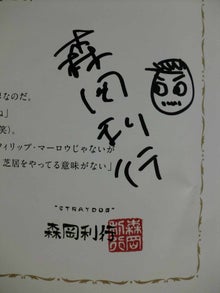 森岡利行
なのだ。
ね」
笑)。
フィリップ・マーロウじゃないが
芝居をやってる意味がない」
"STRAYDOG"
森岡利行